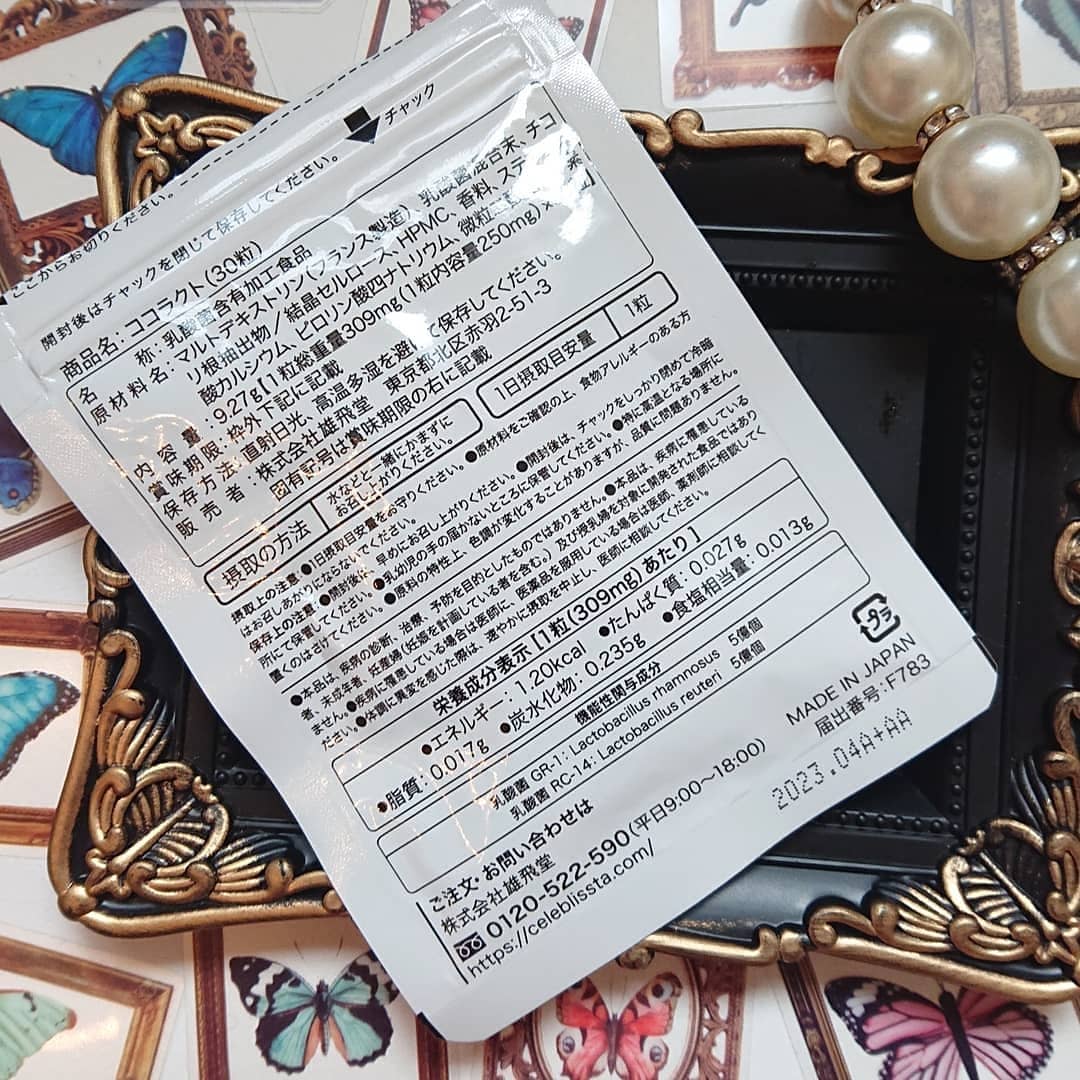 ここからお切りください。
開封後はチャックを閉じて保存してください。 チャック
商品名:ココラクト(30粒)
名 称:乳酸菌含有加工食品
原材料名:マルトデキストリン(フランス製造)、乳酸菌混合末、チコ
リ根抽出物/結晶セルロース、HPMC、香料、ステ
酸カルシウム、ピロリン酸四ナトリウム、微粒
内容量:9.27g【1粒総重量309mg(1粒内容量250mg)×
賞味期限:枠外下記に記載
保存方法:直射日光、高温多湿を避けて保存してください。
販売者:株式会社雄飛堂 東京都北区赤羽2-51-3
固有記号は賞味期限の右に記載
摂取の方法
水などと一緒にかまずに
お召し上がりください。
1日摂取目安量
1粒
摂取上の注意:●1日摂取目安量をお守りください。●原材料をご確認の上、食物アレルギーのある方
はお召しあがりにならないでください。
保存上の注意:●開封後は、早めにお召し上がりください。●開封後は、チャックをしっかり閉めて冷暗
所にて保管してください。●乳幼児の手の届かないところに保管してください。●特に高温となる場所に
置くのはさけてください。●原料の特性上、色調が変化することがありますが、品質に問題ありません。
●本品は、疾病の診断、治療、予防を目的としたものではありません。●本品は、疾病に罹患している
者、未成年者、妊産婦(妊娠を計画している者を含む。)及び授乳婦を対象に開発された食品ではあり
ません。●疾病に罹患している場合は医師に、医薬品を服用している場合は医師、薬剤師に相談してく
ださい。●体調に異変を感じた際は、速やかに摂取を中止し、医師に相談してください。
栄養成分表示【1粒(309mg)あたり】
●エネルギー:1.20kcal ●たんぱく質:0.027g
●脂質:0.017g ●炭水化物:0.235g ●食塩相当量:0.013g
機能性関与成分
乳酸菌 GR-1:Lactobacillus rhamnosus 5億個
乳酸菌 RC-14:Lactobacillus reuteri 5億個
プラ
MADE IN JAPAN
届出番号:F783
2023.04A+AA
ご注文・お問い合わせは
株式会社雄飛堂
0120-522-590(平日9:00~18:00)
https://celeblissta.com/